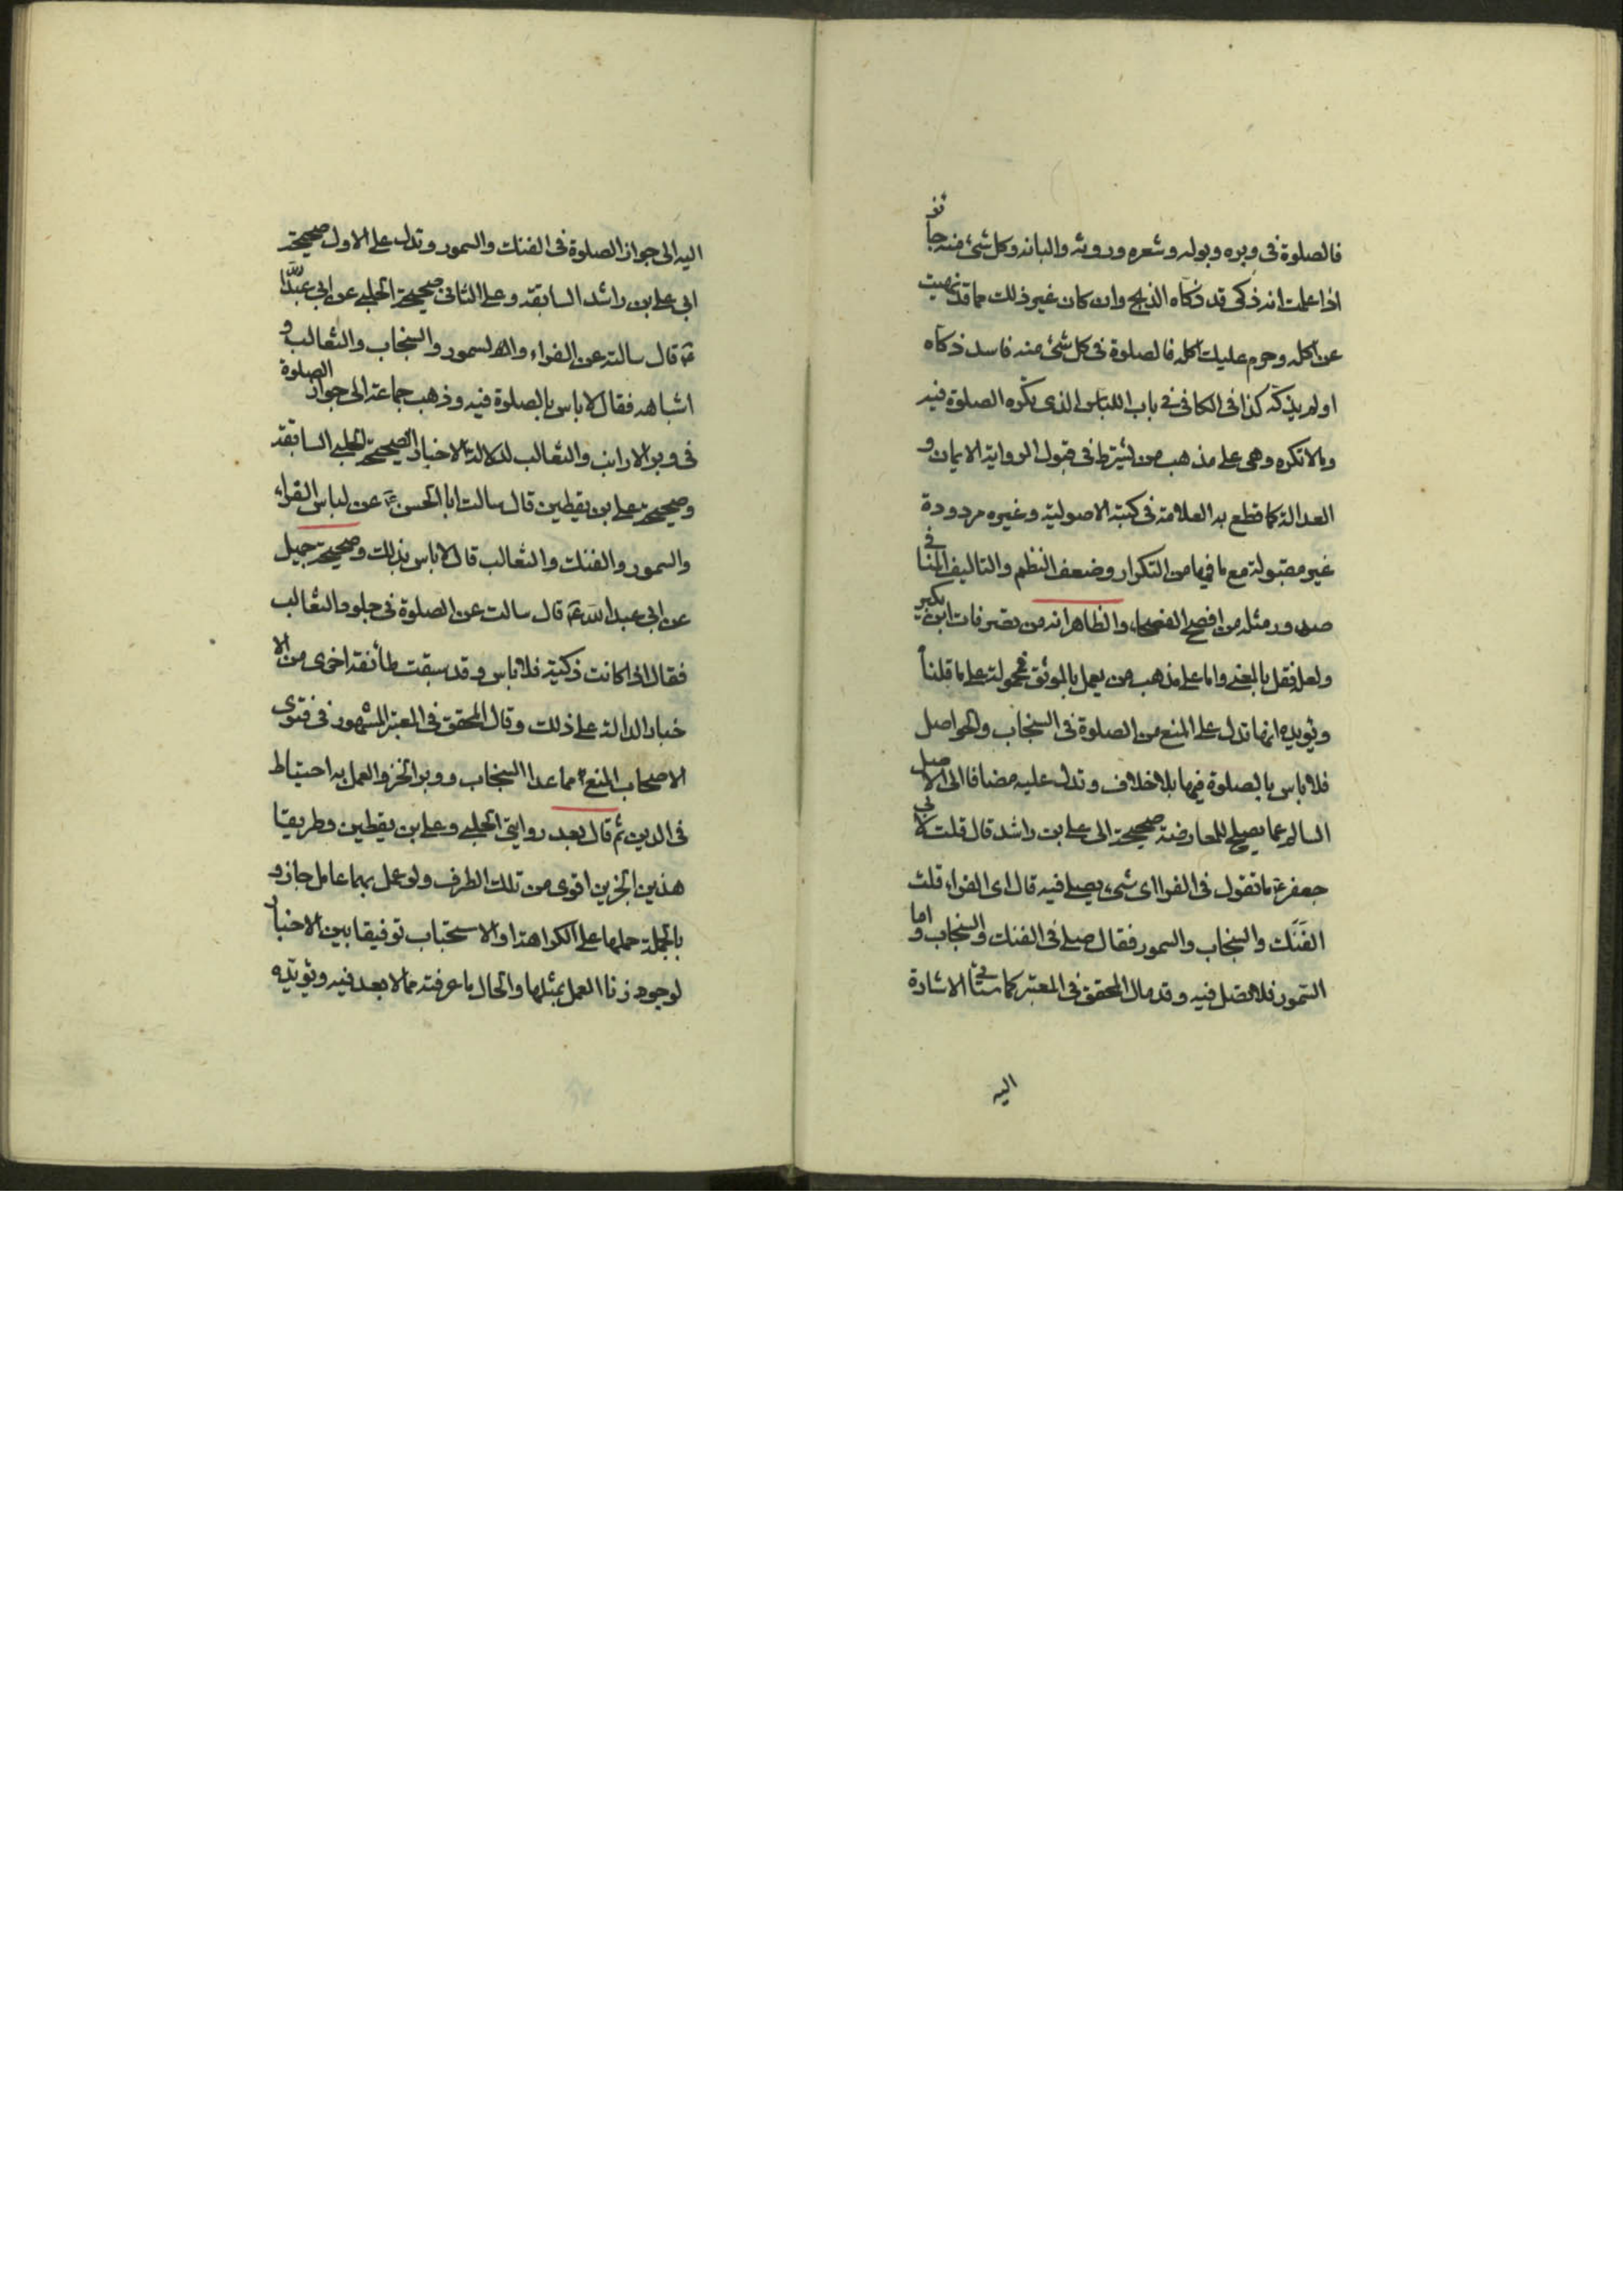 فالصلوة فى وبره وبوله وشعره وروثه والبانه وكل شئ منه جائز
اذا علمت انه ذكى قد ذكاه الذبح وان كان غير ذلك مما قد نهيت
عن اكله وحرم عليك اكله فالصلوة فى كل شئ منه فاسد ذكاه
اولم يذكه كذا فى الكافى فى باب اللباس الذى يكره الصلوة فيه
ومالا تكره وهى على مذهب من يشترط فى قبول الرواية الايمان و
العدالة كما قطع به العلامة فى كتبه الاصولية وغيره مردودة
غير مقبولة مع ما فيها من التكرار وضعف النظم والتاليف المنافى
صدور مثله من افصح الفصحاء والظاهر انه من تصرفات ابن بكير
ولعله نقل بالمعنى واما على مذهب من يعمل بالموثق فمحمولة على ما قلناه
ويؤيده انها تدل على المنع من الصلوة فى السنجاب والحواصل
فلا باس بالصلوة فيها بلا خلاف وتدل عليه مضافا الى الاصل
السالم عما يصلح للمعارضة صحيحة ابى على بن راشد قال قلت لابى
جعفر ع ما تقول فى الفرا اى شىء يصلى فيه قال اى الفراء قلت
الفنك والسنجاب والسمور فقال صل فى الفنك والسنجاب واما
السمور فلا تصل فيه وقد مال المحقق فى المعتبر كما ستأتى الاشارة
اليه
اليه الى جواز الصلوة فى الفنك والسمور وتدل على الاول صحيحة
ابى على بن راشد السابقة وعلى الثانى صحيحة الحلبى عن ابى عبدالله
ع قال سالته عن الفراء والسمور والسنجاب والثعالب و
اشباهه فقال لا باس بالصلوة فيه وذهب جماعة الى جواز الصلوة
فى وبر الارانب والثعالب لدلالة الاخبار الصحيحة الحلبى السابقة
وصحيحة على بن يقطين قال سالت ابا الحسن ع عن لباس الفراء
والسمور والفنك والثعالب قال لا باس بذلك وصحيحة جميل
عن ابى عبدالله ع قال سالت عن الصلوة فى جلود الثعالب
فقال اذا كانت ذكية فلا باس وقد سبقت طائفة اخرى من الا
خبار الدالة على ذلك وقال المحقق فى المعتبر المشهور فى فتوى
الاصحاب المنع مما عدا السنجاب ووبر الخز والعمل به احتياط
فى الدين ثم قال بعد روايتى الحلبى وعلى بن يقطين وطريقا
هذين الخبرين اقوى من تلك الطرف ولو عمل بهما عامل جاز و
بالجملة حملها على الكراهة او الاستحباب توفيقا بين الاخبار
لوجود زنا العمل بمثلها والحال ما عرفته مما لا بعد فيه ويؤيده